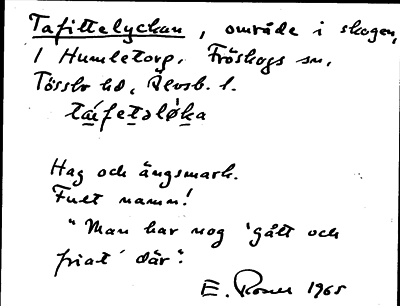 Tafittelyckan, område i skogen,
/ Humletorp. Fröskogs sn,
Tössbo hd, Älvsb. l.
Hag och ängsmark.
Fult namn!
"Man har nog 'gått och
friat' där".
E. 1965